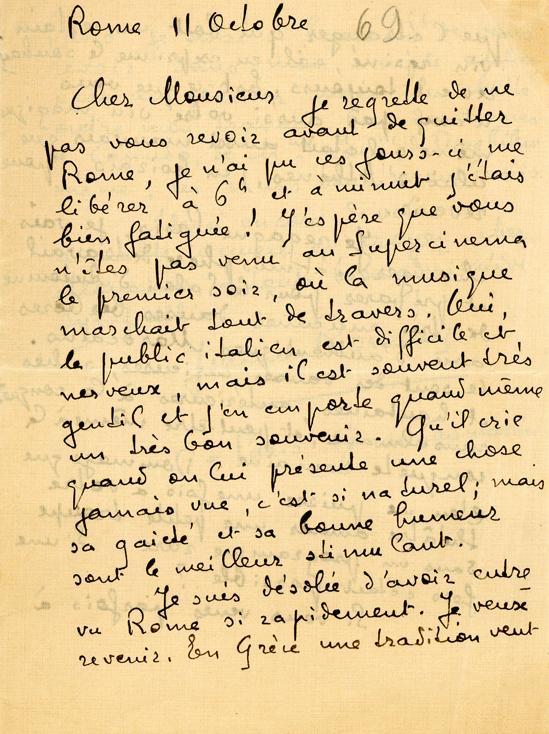 Rome 11 Octobre 69
Cher Monsieur je regrette de ne
pas vous revoir avant de quitter
Rome, je n'ai pu ces jours-ci me
libérer à 6h et à minuit j'étais
bien fatiguée ! J'espère que vous
n'êtes pas venu au Supercinema
le premier soir, où la musique
marchait tout de travers. Oui,
le public italien est difficile et
nerveux, mais il est souvent très
gentil et j'en emporte quand même
un très bon souvenir. Qu'il crie
quand on lui présente une chose
jamais vue, c'est si naturel ; mais
sa gaieté et sa bonne humeur
sont le meilleur stimulant.
Je suis désolée d'avoir entre
vu Rome si rapidement. Je veux
revenir. En Grèce une tradition veut